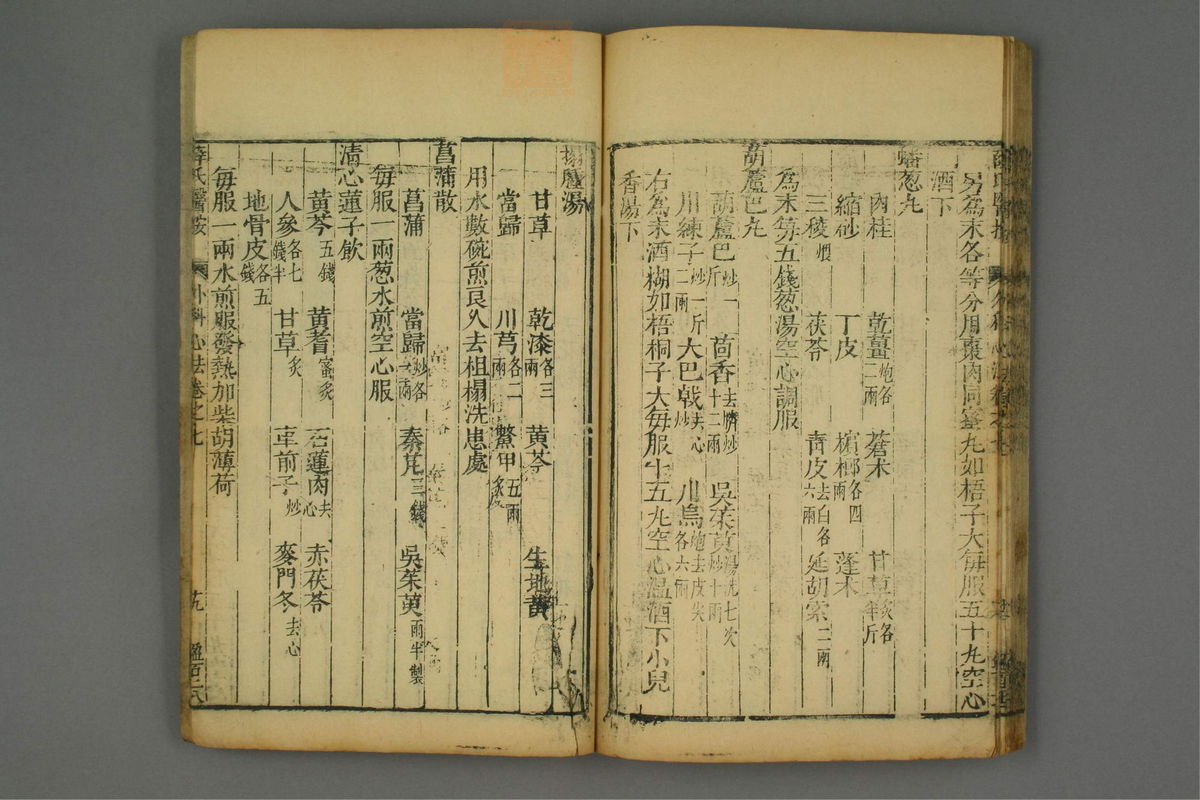 另為末各等分用棗肉同蜜丸如梧子大每服五十丸空心
酒下
蟠葱丸
肉桂 乾薑炮各二兩 蒼朮 甘草炙各半斤
縮砂 丁皮 檳榔各四兩 蓬朮
三稜煨 茯苓 青皮去白各六兩 延胡索二兩
為末每五錢葱湯空心調服
葫蘆巴丸
葫蘆巴炒一斤 茴香去臍炒十二兩 吳茱萸湯洗七次炒十兩
川練子炒一斤二兩 大巴戟去心炒 川烏炮去皮尖各六兩
右為末酒糊如梧桐子大每服十五丸空心溫酒下小兒
香湯下
搨𤺊湯
甘草 乾漆各三兩 黃芩 生地黃
當歸 川芎各二兩 鱉甲五兩炙
用水數碗煎良久去柤搨洗患處
菖蒲散
菖蒲 當歸炒各一兩 秦艽三錢 吳茱萸兩半製
每服一兩葱水煎空心服
清心蓮子飲
黃芩五錢 黃耆蜜炙 石蓮肉去心 赤茯苓
人參各七錢半 甘草炙 車前子炒 麥門冬去心
地骨皮各五錢
每服一兩水煎服發熱加柴胡薄荷
薛氏醫按 外科心法卷之七